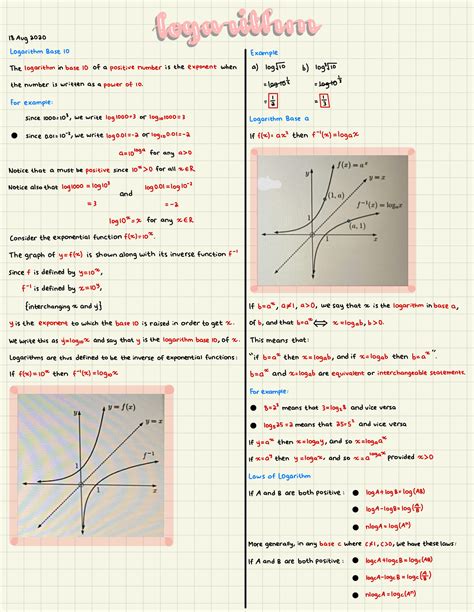 logarithm
13 Aug 2020
Logarithm Base 10
The logarithm in base 10 of a positive number is the exponent when
the number is written as a power of 10.
For example:
since 1000=10³, we write log1000=3 or log₁₀1000=3
● since 0.01=10⁻², we write log0.01=-2 or log₁₀0.01=-2
a=10^loga for any a>0
Notice that a must be positive since 10ˣ>0 for all x∈R
Notice also that log1000=log10³ and log0.01=log10⁻²
=3 =-2
log10ˣ=x for any x∈R
Consider the exponential function f(x)=10ˣ.
The graph of y=f(x) is shown along with its inverse function f⁻¹
Since f is defined by y=10ˣ,
f⁻¹ is defined by x=10^y,
{interchanging x and y}
y is the exponent to which the base 10 is raised in order to get x.
We write this as y=log₁₀x and say that y is the logarithm base 10, of x.
Logarithms are thus defined to be the inverse of exponential functions:
If f(x)=10ˣ then f⁻¹(x)=log₁₀x
y
y = f(x)
y = x
1
f⁻¹
1
x
Example
a) log√10 b)
=log10^½
=½ =⅓
Logarithm Base a
If f(x)=aˣ then f⁻¹(x)=logₐx
f(x) = aˣ
y
y = x
(1, a)
f⁻¹(x) = logₐx
1
(a, 1)
1
x
If b=aˣ, a≠1, a>0, we say that x is the logarithm in base a,
of b, and that b=aˣ ⟺ x=logₐb, b>0.
This means that:
"if b=aˣ then x=logₐb, and if x=logₐb then b=aˣ"
b=aˣ and x=logₐb are equivalent or interchangeable statements.
For example:
● 8=2³ means that 3=log₂8 and vice versa
● log₅25=2 means that 25=5² and vice versa
If y=aˣ then x=logₐy, and so x=logₐaˣ
If x=a^y then y=logₐx, and so x=a^logₐx provided x>0
Laws of Logarithm
If A and B are both positive: ● logA+logB=log(AB)
● logA-logB=log(A/B)
● nlogA=log(Aⁿ)
More generally, in any base c where c≠1, c>0, we have these laws:
If A and B are both positive: ● log꜀A+log꜀B=log꜀(AB)
● log꜀A-log꜀B=log꜀(A/B)
● nlog꜀A=log꜀(Aⁿ)